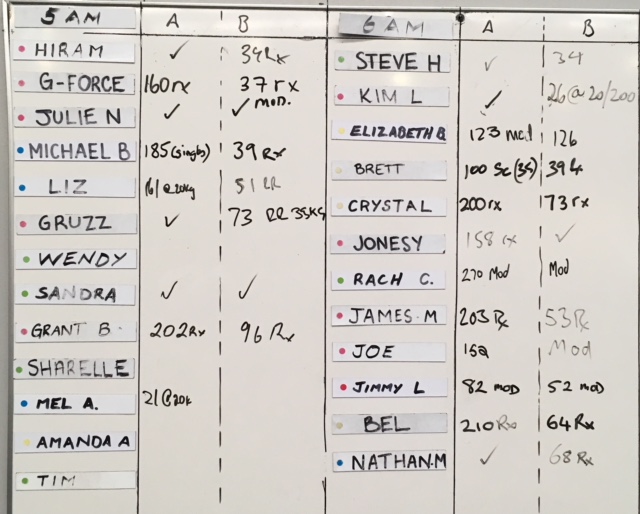 5 AM A B
HIRAM ✓ 34Rx
G-FORCE 160rx 37 rx
JULIE N ✓ ✓ MOD.
MICHAEL B 185 39 Rx
LIZ @20kg 51
GRUZZ ✓ 73 RR 35KG
WENDY
SANDRA ✓ ✓
GRANT B. 202Rx 96 Rx
SHARELLE
MEL A. 21@20k
AMANDA A
TIM
6 AM A B
STEVE H ✓ 34
KIM L ✓ 26@20/200
ELIZABETH B 123 mod 126
BRETT 100 Sc (35)
CRYSTAL 200 rx 173 rx
JONESY 158 rx ✓
RACH C. 270 Mod Mod
JAMES M 203 Rx 53 Rx
JOE Mod
JIMMY L 82 MOD 52 MOD
BEL 210 Rx 64 Rx
NATHAN.M ✓ 68 Rx